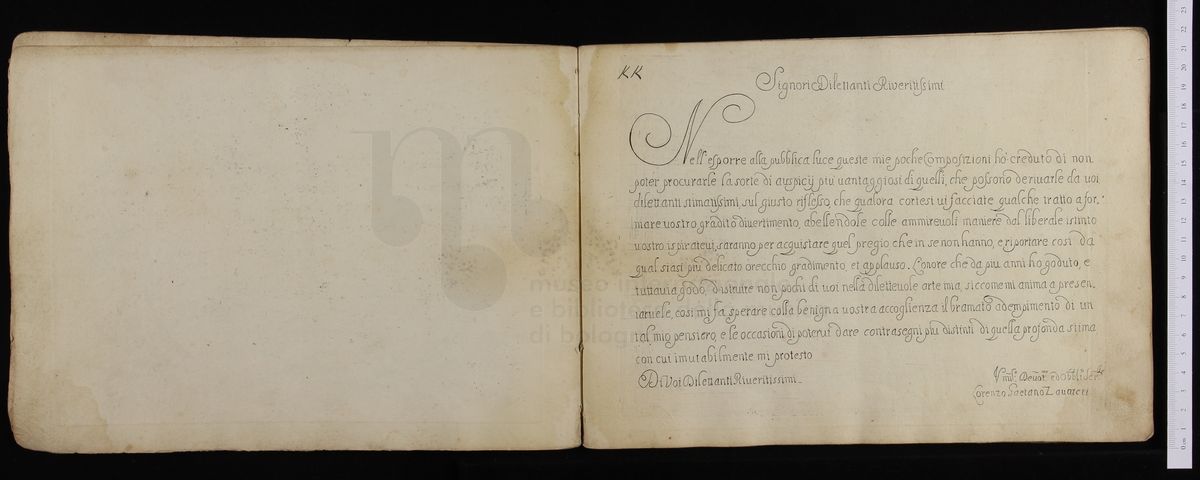 KK
Signori Dilettanti Riveritissimi
Nell' esporre alla pubblica luce queste mie poche Composizioni hò creduto di non
poter procurarle la sorte di auspicij più uantaggiosi di quelli, che possono deriuarle da uoi
dilettanti stimatissimi, sul giusto riflesso, che qualora cortesi ui facciate qualche tratto a for.
mare uostro gradito diuertimento, abellendole colle ammireuoli maniere dal liberale istinto
uostro ispirateui, saranno per acquistare quel pregio, che in se non hanno, e riportare così da
qual siasi più delicato orecchio gradimento, et applauso. L'onore che da più anni ho goduto, e
tuttauia godo, d'istruire non pochi di uoi nella diletteuole arte mia, siccome mi anima a presen.
taruele, così mi fa sperare colla benigna uostra accoglienza il bramato adempimento di un
tal mio pensiero, e le occasioni di poterui dare contrasegni più distinti di quella profonda stima
con cui imutabilmente mi protesto
Di Voi Dilettanti Riueritissimi
Vmil.º Deuot.º ed Obbl.º Ser.re
Lorenzo Gaetano Zauateri
museo in
e bibliote
di bologn